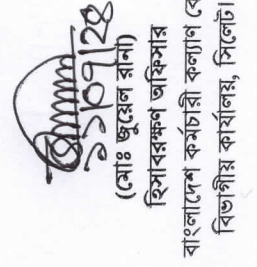 ১১।০৭।২৪
(মোঃ জুয়েল রানা)
হিসাবরক্ষণ অফিসার
বাংলাদেশ কর্মচারী কল্যাণ বো
বিভাগীয় কার্যালয়, সিলেট।